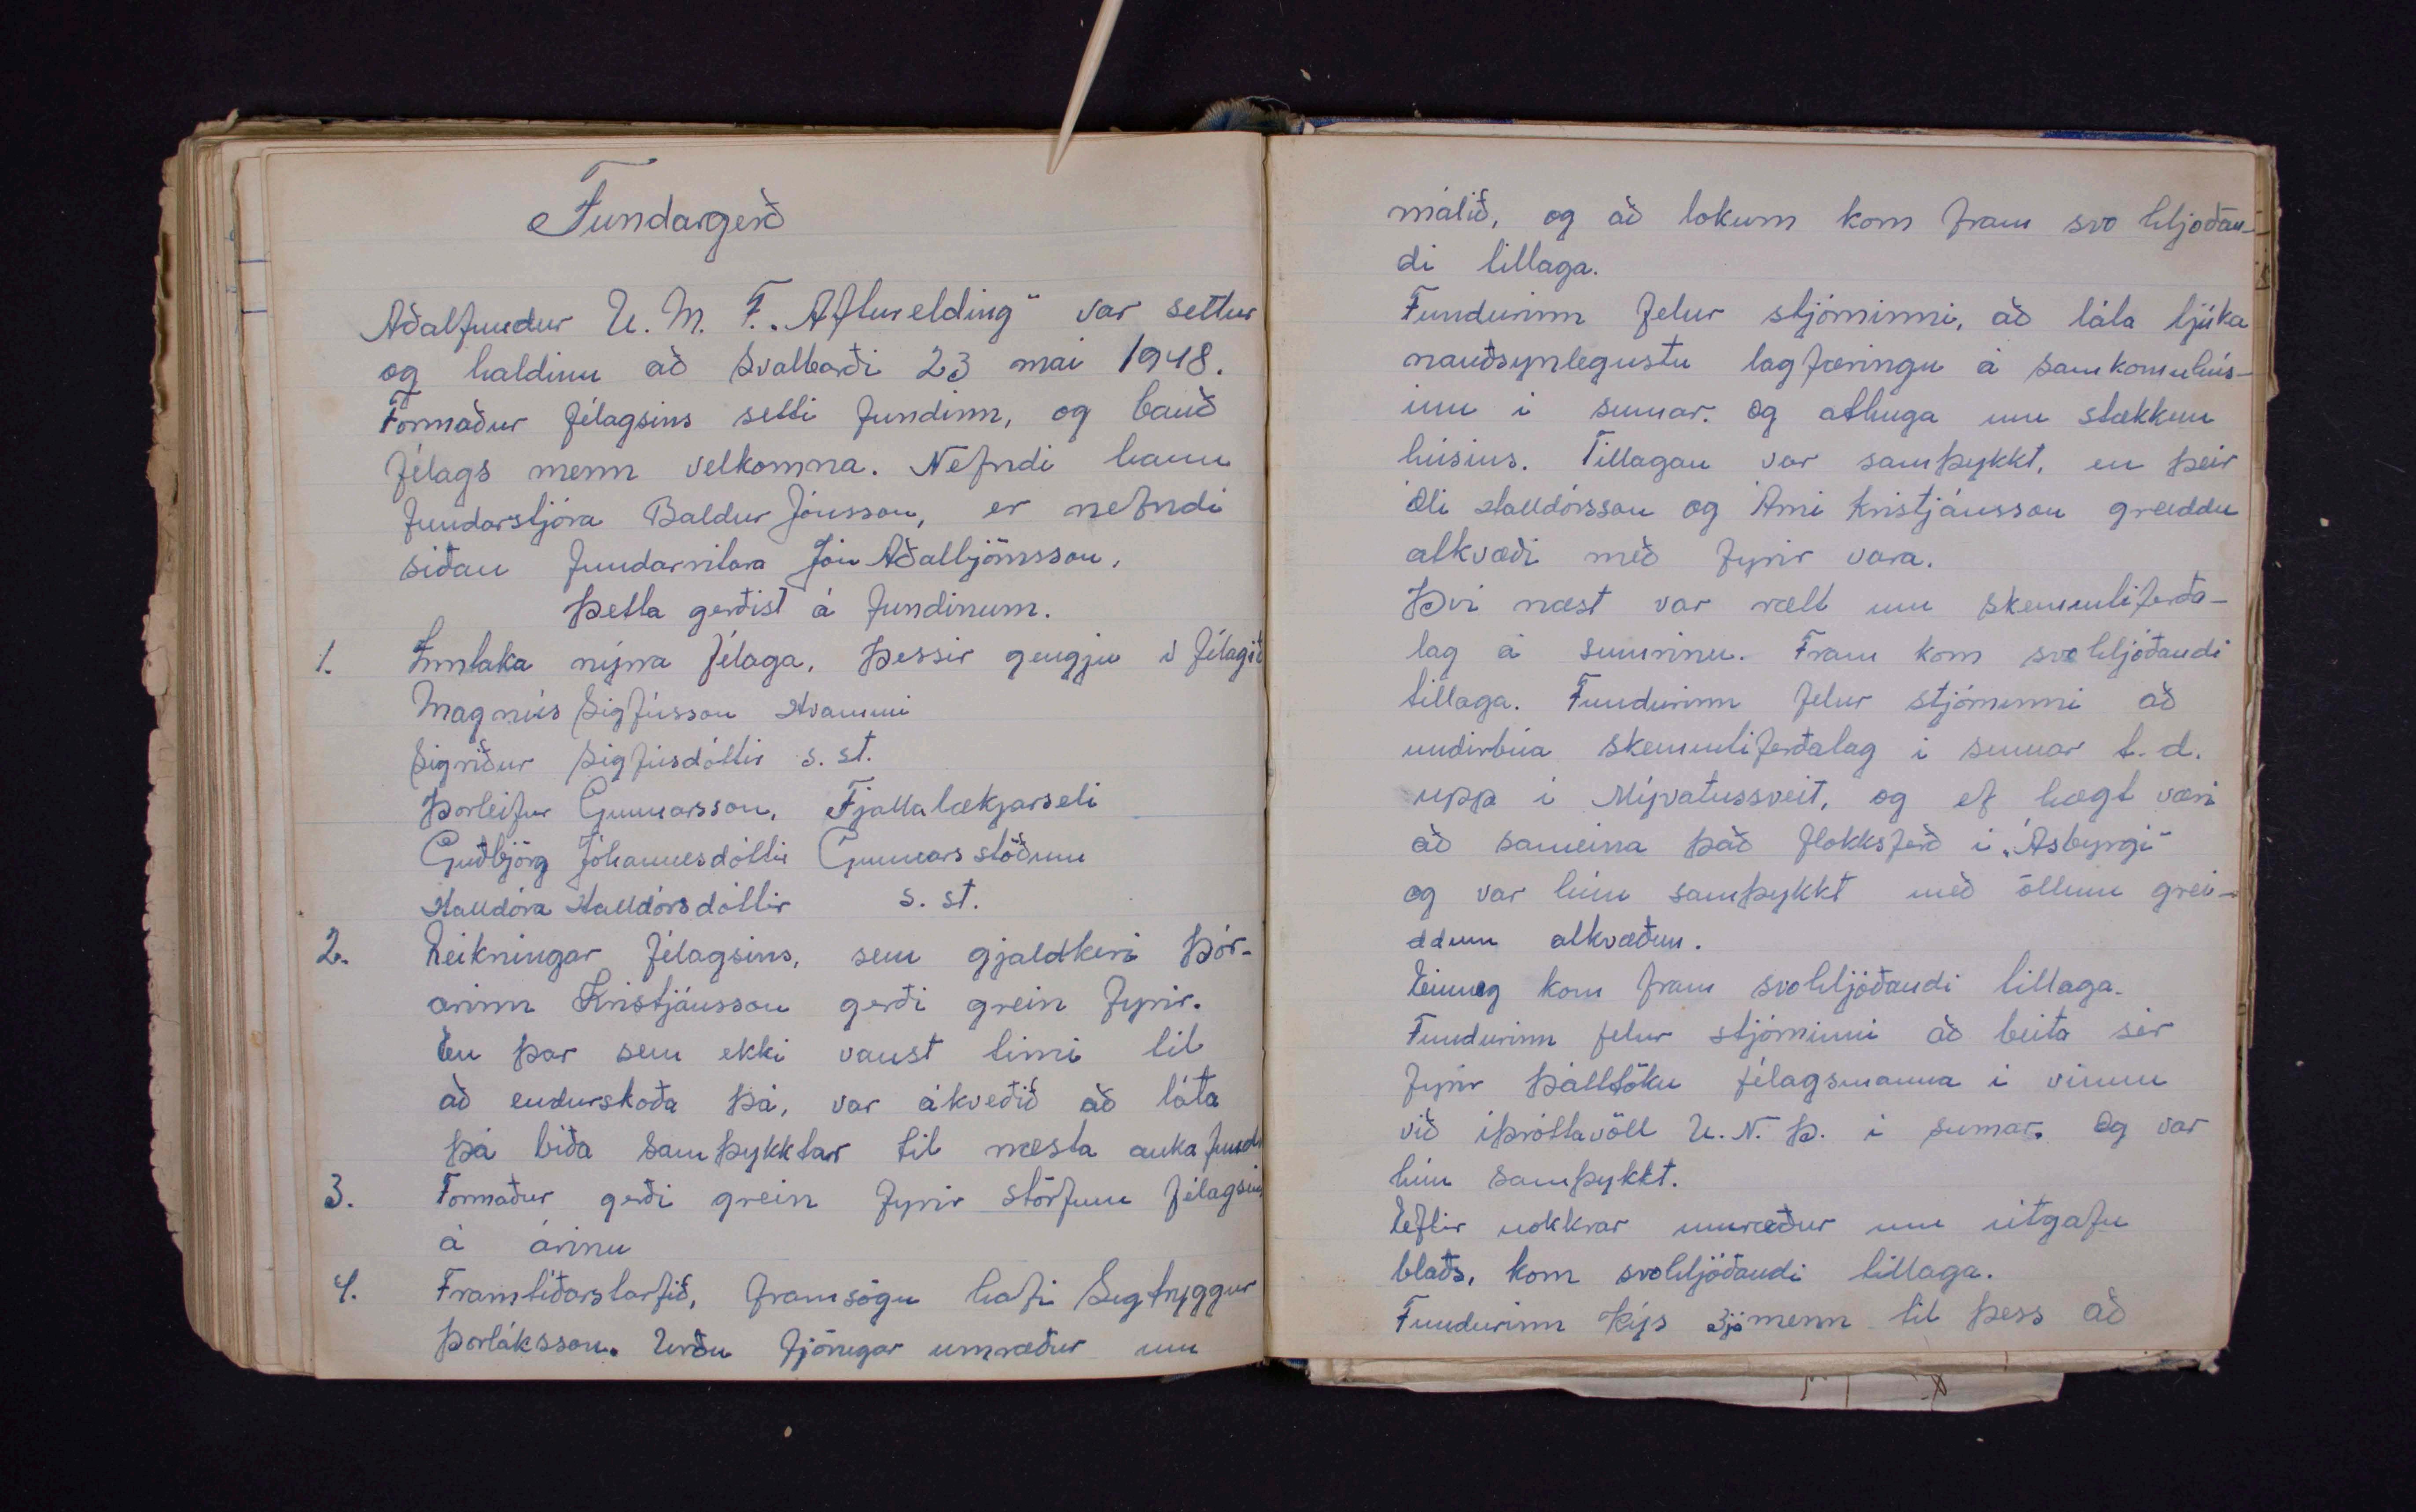 Fundargerð
Aðalfundur U. M. F. „Afturelding" var settur
og haldinn að Svalbarði 23 mai 1948.
Formaður félagsins setti fundinn, og bauð
félags menn velkomna. Nefndi hann
fundarstjóra Baldur Jónsson, er nefndi
síðan fundarritara Jón Aðalbjörnsson.
Þetta gerðist á fundinum.
1. Inntaka nýrra félaga. Þessir gengju í félagið
Magnús Sigfússon Hvammi
Sigríður Sigfúsdóttir s. st.
Þorleifur Gunnarsson, Fjallalækjarseli
Guðbjörg Jóhannesdóttir Gunnarsstöðum
Halldóra Halldórsdóttir s. st.
2. Reikningar félagsins, sem gjaldkeri Þór-
arinn Kristjánsson gerði grein fyrir.
En þar sem ekki vanst timi til
að endurskoða þá, var ákveðið að láta
þá bíða samþykktar til næsta auka fundar
3. Formaður gerði grein fyrir störfum félagsins
á árinu
4. Framtíðarstarfið, framsögu hafi Sigtryggur
Þorláksson. Urðu fjörugar umræður um
málið, og að lokum kom fram svo hljóðan-
di tillaga.
Fundurinn felur stjórninni, að láta ljúka
nauðsynlegustu lagfæringu á samkomuhús-
inu í sumar. og athuga um stækkun
húsins. Tillagan var samþykkt, en þeir
Óli Halldórsson og Árni Kristjánsson greiddu
atkvæði með fyrir vara.
Því næst var rætt um skemmtiferða-
lag á sumrinu. Fram kom svohljóðandi
tillaga. Fundurinn felur stjórninni að
undirbúa skemmtiferðalag í sumar t.d.
upp í Mývatnssveit, og ef hægt væri
að sameina það flokksferð í „Ásbyrgi"
og var hún samþykkt með öllum grei-
ddum atkvæðum.
Einnig kom fram svohljóðandi tillaga.
Fundurinn felur stjórninni að beita sér
fyrir þátttöku félagsmanna í vinnu
við íþróttavöll U. N. Þ. í sumar. Og var
hún samþykkt.
Eftir nokkrar umræður um útgáfu
blaðs, kom svohljóðandi tillaga.
Fundurinn kýs 3já menn til þess að